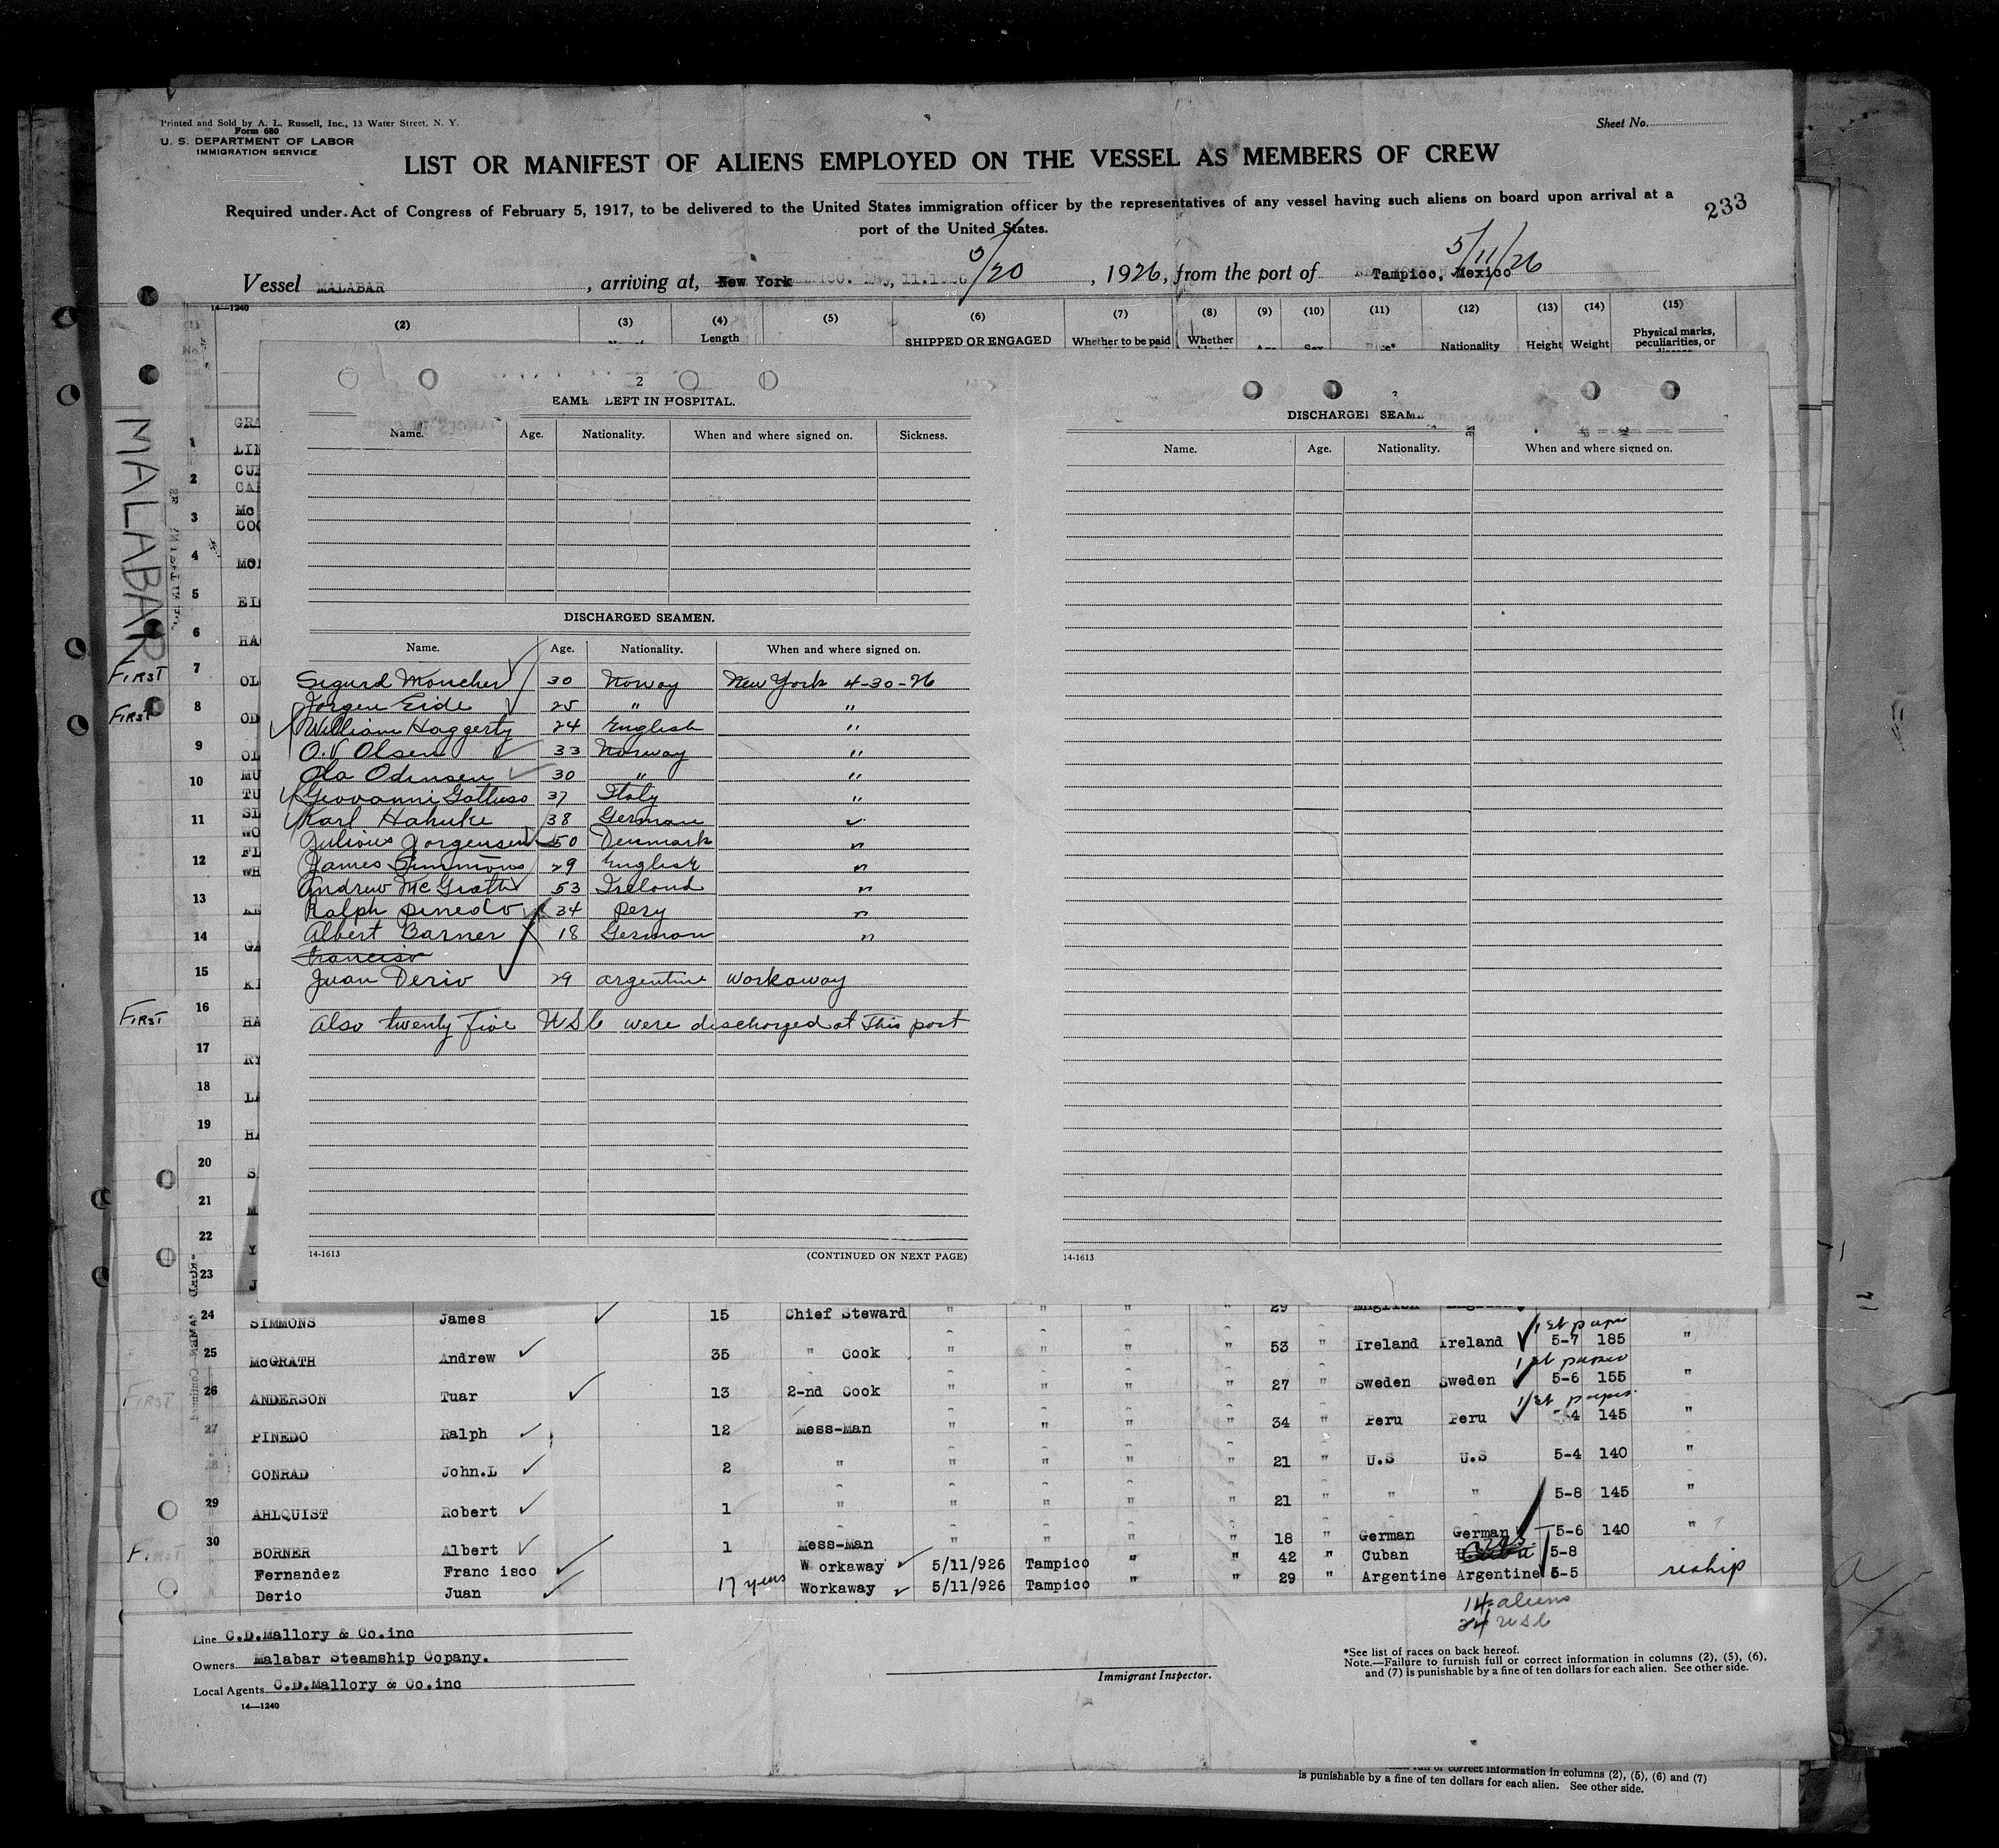 Printed and Sold by A. L. Russell, Inc., 13 Water Street, N. Y.
Form 680
U. S. DEPARTMENT OF LABOR
IMMIGRATION SERVICE
Sheet No.
LIST OR MANIFEST OF ALIENS EMPLOYED ON THE VESSEL AS MEMBERS OF CREW
Required under Act of Congress of February 5, 1917, to be delivered to the United States immigration officer by the representatives of any vessel having such aliens on board upon arrival at a
port of the United States.
233
5/11/26
Vessel MALABAR, arriving at, New York 5/20, 1926, from the port of Tampico, Mexico
14—1240
(2) (3) (4) (5) (6) (7) (8) (9) (10) (11) (12) (13) (14) (15)
Length SHIPPED OR ENGAGED Whether to be paid Whether Age Sex Race* Nationality Height Weight Physical marks, peculiarities, or
MALABAR
2
LEFT IN HOSPITAL.
Name. Age. Nationality. When and where signed on. Sickness.
DISCHARGED SEAMEN.
Name. Age. Nationality. When and where signed on.
Sigurd Moncher 30 Norway New York 4-30-26
Jorgen Eide 25 " "
William Haggerty 24 English "
O. V Olsen 33 Norway "
Ola Odinsen 30 " "
Geovanni Gattuso 37 Italy "
Karl Hahnke 38 German "
Julious Jorgensen 50 Denmark "
James Simmons 29 English "
Andrew McGrath 53 Ireland "
Ralph Pinedo 34 Pery "
Albert Barner 18 German "
Francisco
Juan Derio 29 argentine Workaway
Also twenty five USC were discharged at This port
14-1613 (CONTINUED ON NEXT PAGE)
DISCHARGED SEAM
Name. Age. Nationality. When and where signed on.
14-1613
1 GRA LIN
2 CUR CAR
3 Mc COO
4 MO
5 EL
6 HA
First 7 OL
First 8 OD
9 OL
10 MU TU
11 SI WO
12 FL WH
13 KE
14 GA
15 KI
First 16 HA
17 RY
18 LA
19 HA
20 S
21 M
22 Y
23 J
24 SIMMONS James 15 Chief Steward " " " " 29 English
25 McGRATH Andrew 35 " Cook " " " " 53 " Ireland Ireland 1st paper 5-7 185 "
First 26 ANDERSON Tuar 13 2-nd Cook " " " " 27 " Sweden Sweden 1st paper 5-6 155 "
27 PINEDO Ralph 12 Mess-Man " " " " 34 " Peru Peru 1st paper -4 145 "
28 CONRAD John.L 2 " " " " " 21 " U.S U.S 5-4 140 "
29 AHLQUIST Robert 1 " " " " " 21 " " " 5-8 145 "
First 30 BORNER Albert 1 Mess-Man " " " " 18 " German German 5-6 140 "
Fernandez Franc isco W orkaway 5/11/926 Tampico " " 42 " Cuban Cuba 5-8
Derio Juan 17 years Workaway 5/11/926 Tampico " " 29 " Argentine Argentine 5-5 reship
14 aliens
24 USC
Line C.D.Mallory & Co.inc
Owners Malabar Steamship Copany.
Local Agents C.D.Mallory & Co.inc
14—1240
Immigrant Inspector.
*See list of races on back hereof.
Note.—Failure to furnish full or correct information in columns (2), (5), (6),
and (7) is punishable by a fine of ten dollars for each alien. See other side.
or correct information in columns (2), (5), (6) and (7)
is punishable by a fine of ten dollars for each alien. See other side.